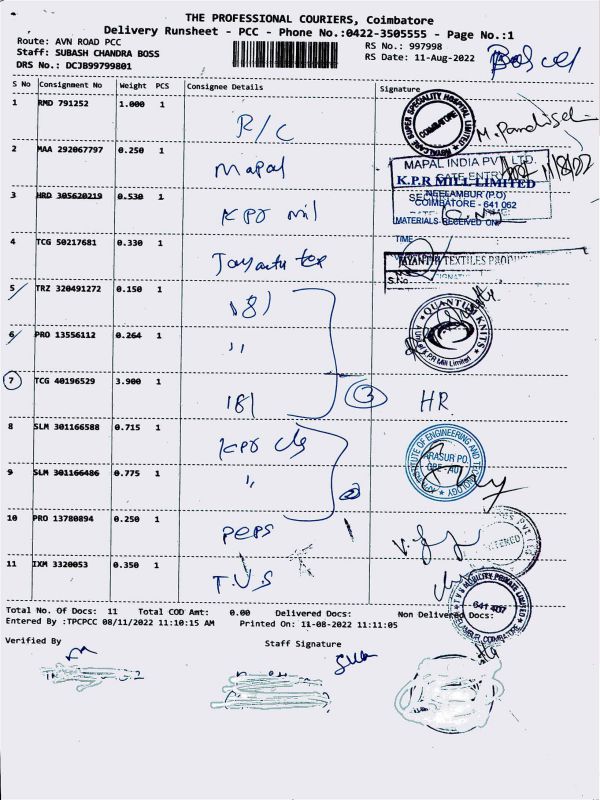 THE PROFESSIONAL COURIERS, Coimbatore
Delivery Runsheet - PCC - Phone No.:0422-3505555 - Page No.:1
Route: AVN ROAD PCC
RS No.: 997998
Staff: SUBASH CHANDRA BOSS
RS Date: 11-Aug-2022
DRS No.: DCJB99799801
S No Consignment No Weight PCS Consignee Details Signature
1 RMD 791252 1.000 1 R/C
2 MAA 292067797 0.250 1 mapal
3 HRD 305620219 0.530 1 KPR mil
4 TCG 50217681 0.330 1 Jayantu tex
5 TRZ 320491272 0.150 1 181
6 PRO 13556112 0.264 1 "
7 TCG 40196529 3.900 1 181 3 HR
8 SLM 301166588 0.715 1 KPR clg
9 SLM 301166486 0.775 1 "
10 PRO 13780894 0.250 1 peps
11 IXM 3320053 0.350 1 T.V.S
COIMBATORE
MAPAL INDIA PVT. LTD.
GATE ENTRY
11/8/22
K.P.R MILL LIMITED
NEELAMBUR (P.O)
COIMBATORE - 641 062
MATERIALS RECEIVED ON
TIME
JAYANTHI TEXTILES
QUANTUM KNITS
A Unit of KPR Mill Limited
INSTITUTE OF ENGINEERING AND TECHNOLOGY
ARASUR PO.
641 407
Total No. Of Docs: 11 Total COD Amt: 0.00 Delivered Docs: Non Delivered Docs:
Entered By :TPCPCC 08/11/2022 11:10:15 AM Printed On: 11-08-2022 11:11:05
Verified By Staff Signature